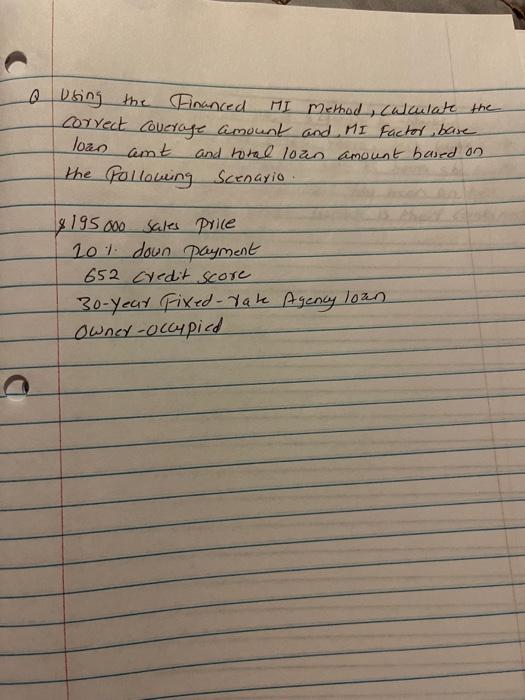 Q Using the Financed MI Method, Calculate the
correct coverage amount and, MI Factor, base
loan amt and total loan amount based on
the following Scenario.
$195 000 Sales price
10 % down payment
652 credit score
30-year Fixed-rate Agency loan
Owner-occupied